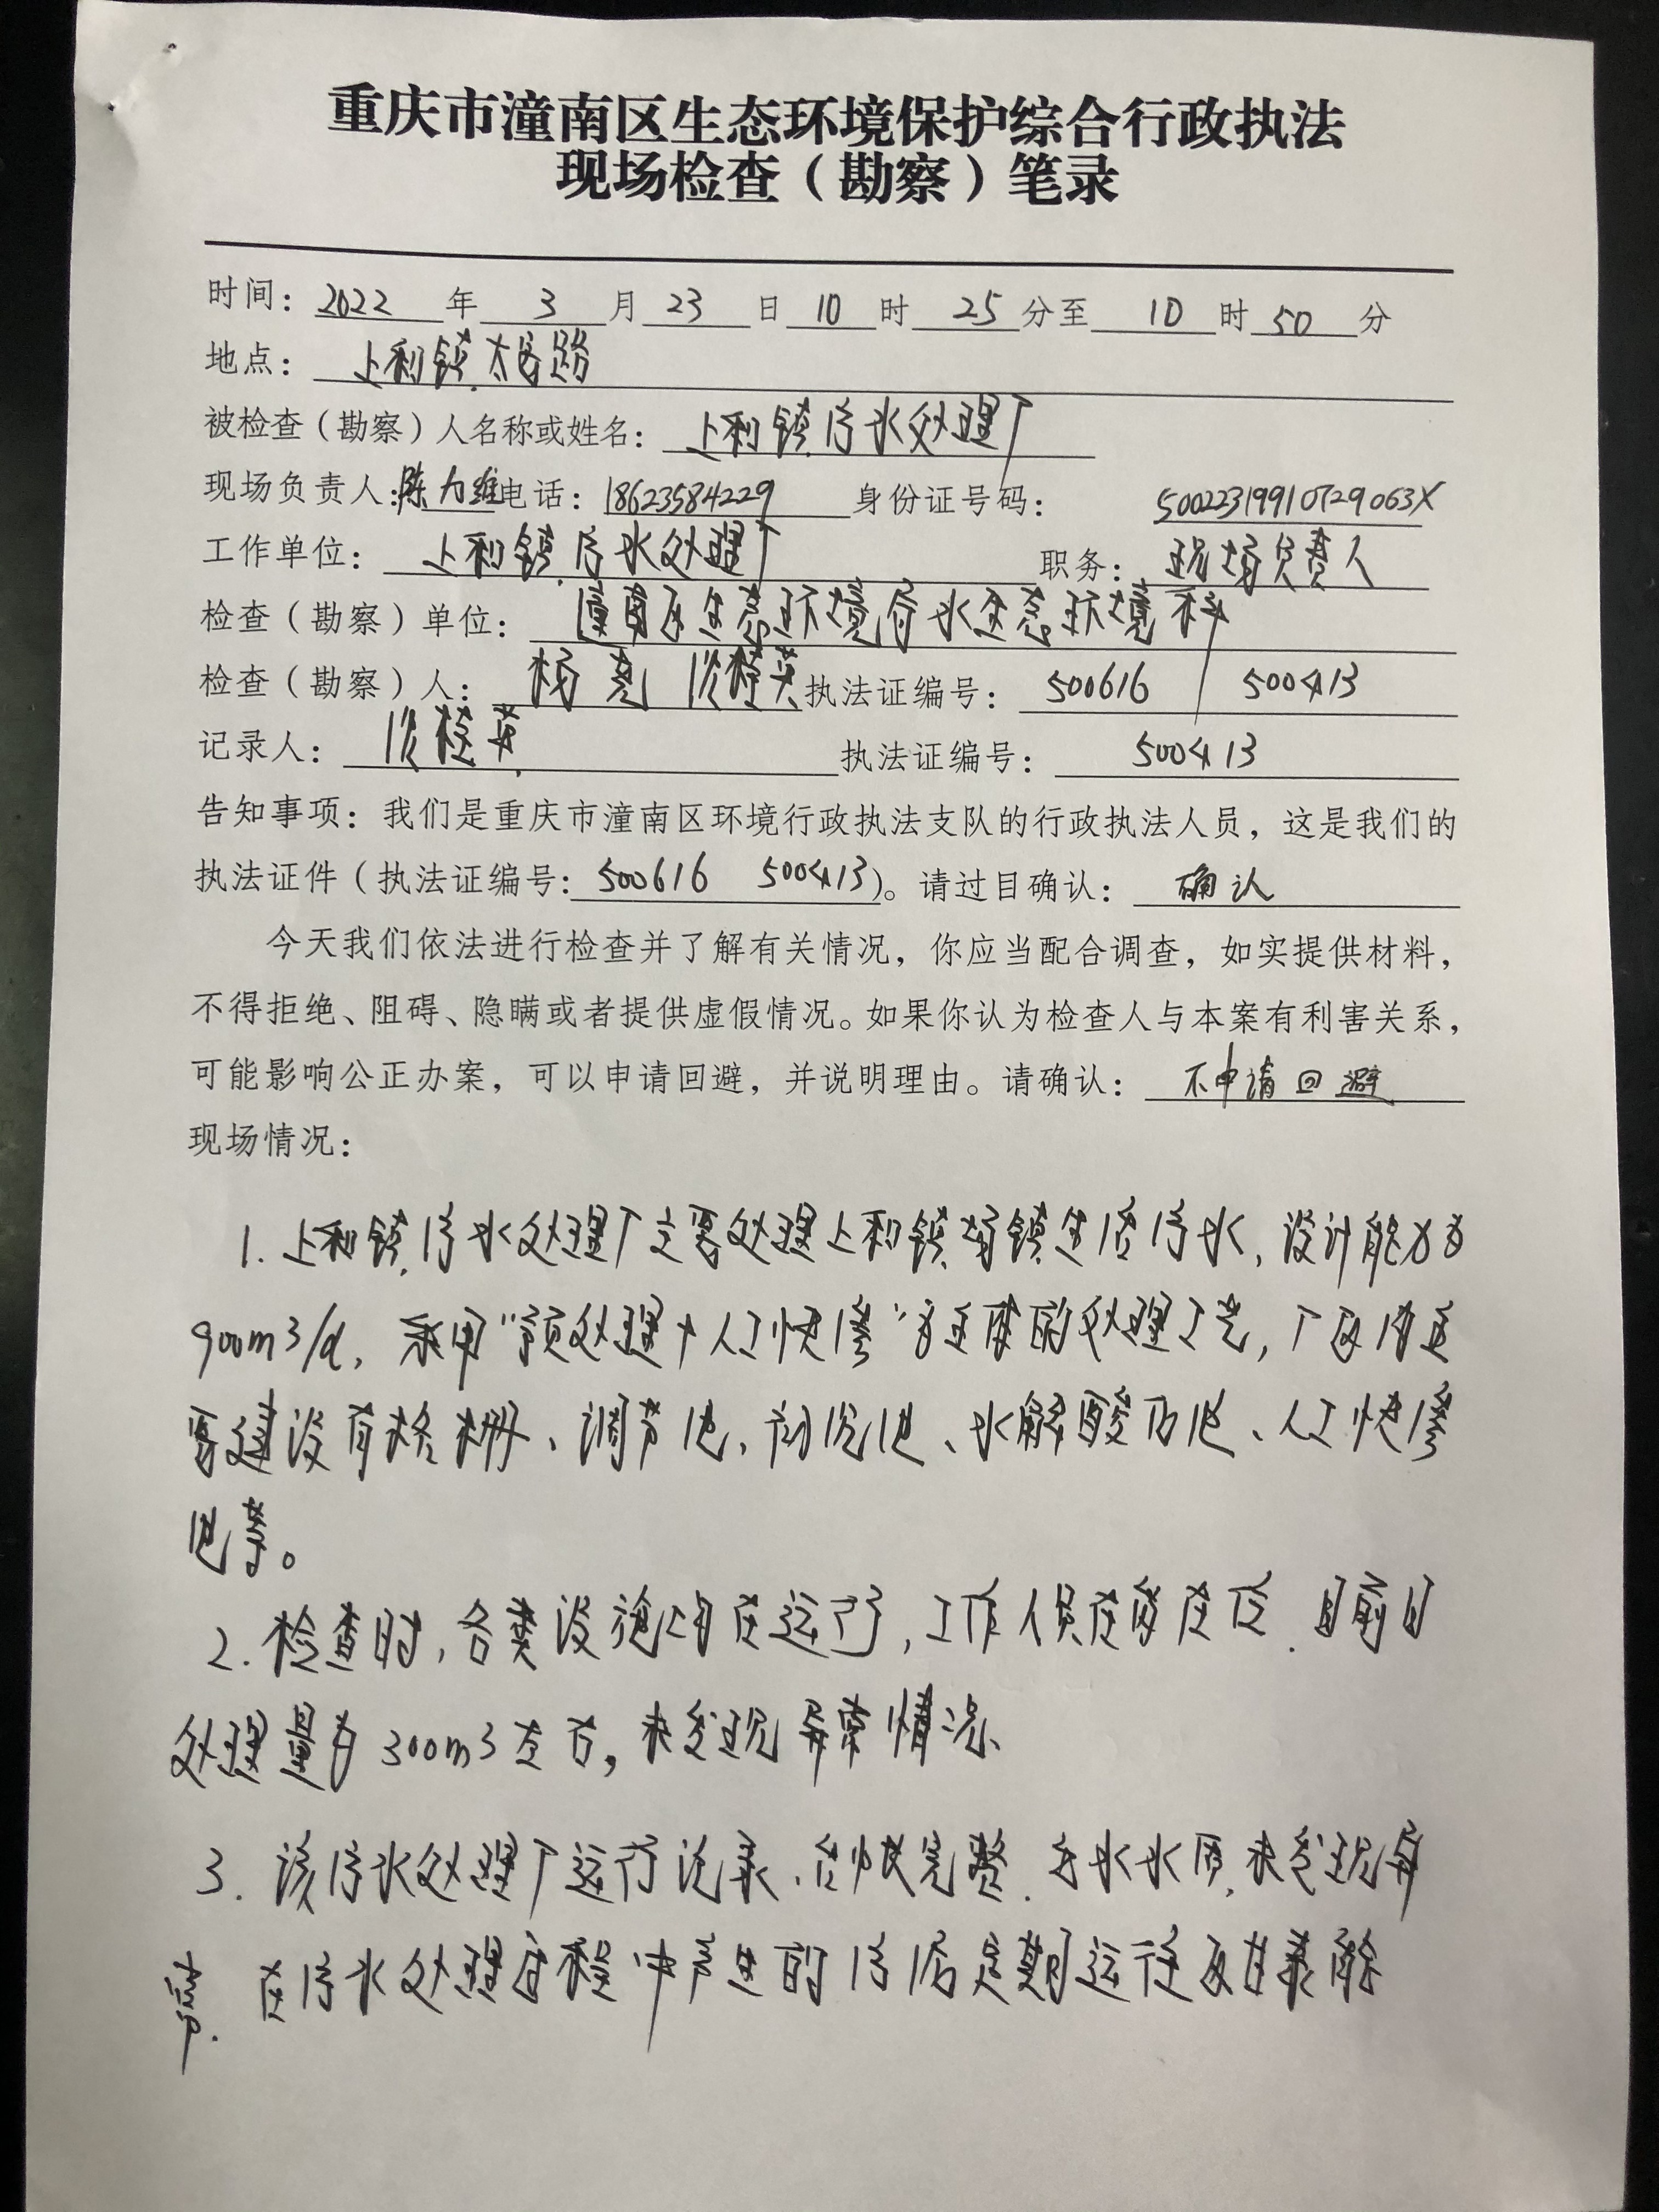 重庆市潼南区生态环境保护综合行政执法
现场检查（勘察）笔录
时间：2022年3月23日10时25分至10时50分
地点：上和镇太客路
被检查（勘察）人名称或姓名：上和镇污水处理厂
现场负责人：陈力维电话：18623584229 身份证号码：50022319910729063X
工作单位：上和镇污水处理厂 职务：现场负责人
检查（勘察）单位：潼南区生态环境局水生态环境科
检查（勘察）人：杨亮 桂英执法证编号：500616 / 500413
记录人：桂英 执法证编号：500413
告知事项：我们是重庆市潼南区环境行政执法支队的行政执法人员，这是我们的
执法证件（执法证编号：500616 500413）。请过目确认：确认
今天我们依法进行检查并了解有关情况，你应当配合调查，如实提供材料，
不得拒绝、阻碍、隐瞒或者提供虚假情况。如果你认为检查人与本案有利害关系，
可能影响公正办案，可以申请回避，并说明理由。请确认：不申请回避
现场情况：
1. 上和镇污水处理厂主要处理上和镇场镇生活污水，设计能力为
900m3/d，采用“预处理+人工快渗”为主体的处理工艺，厂区内主
要建设有格栅、调节池、初沉池、水解酸化池、人工快渗
池等。
2. 检查时，各类设施均在运行，工作人员在岗在位，目前日
处理量为300m3左右，未发现异常情况、
3. 该污水处理厂运行记录、台帐完整，出水水质未发现异
常。在污水处理过程中产生的污泥定期运往